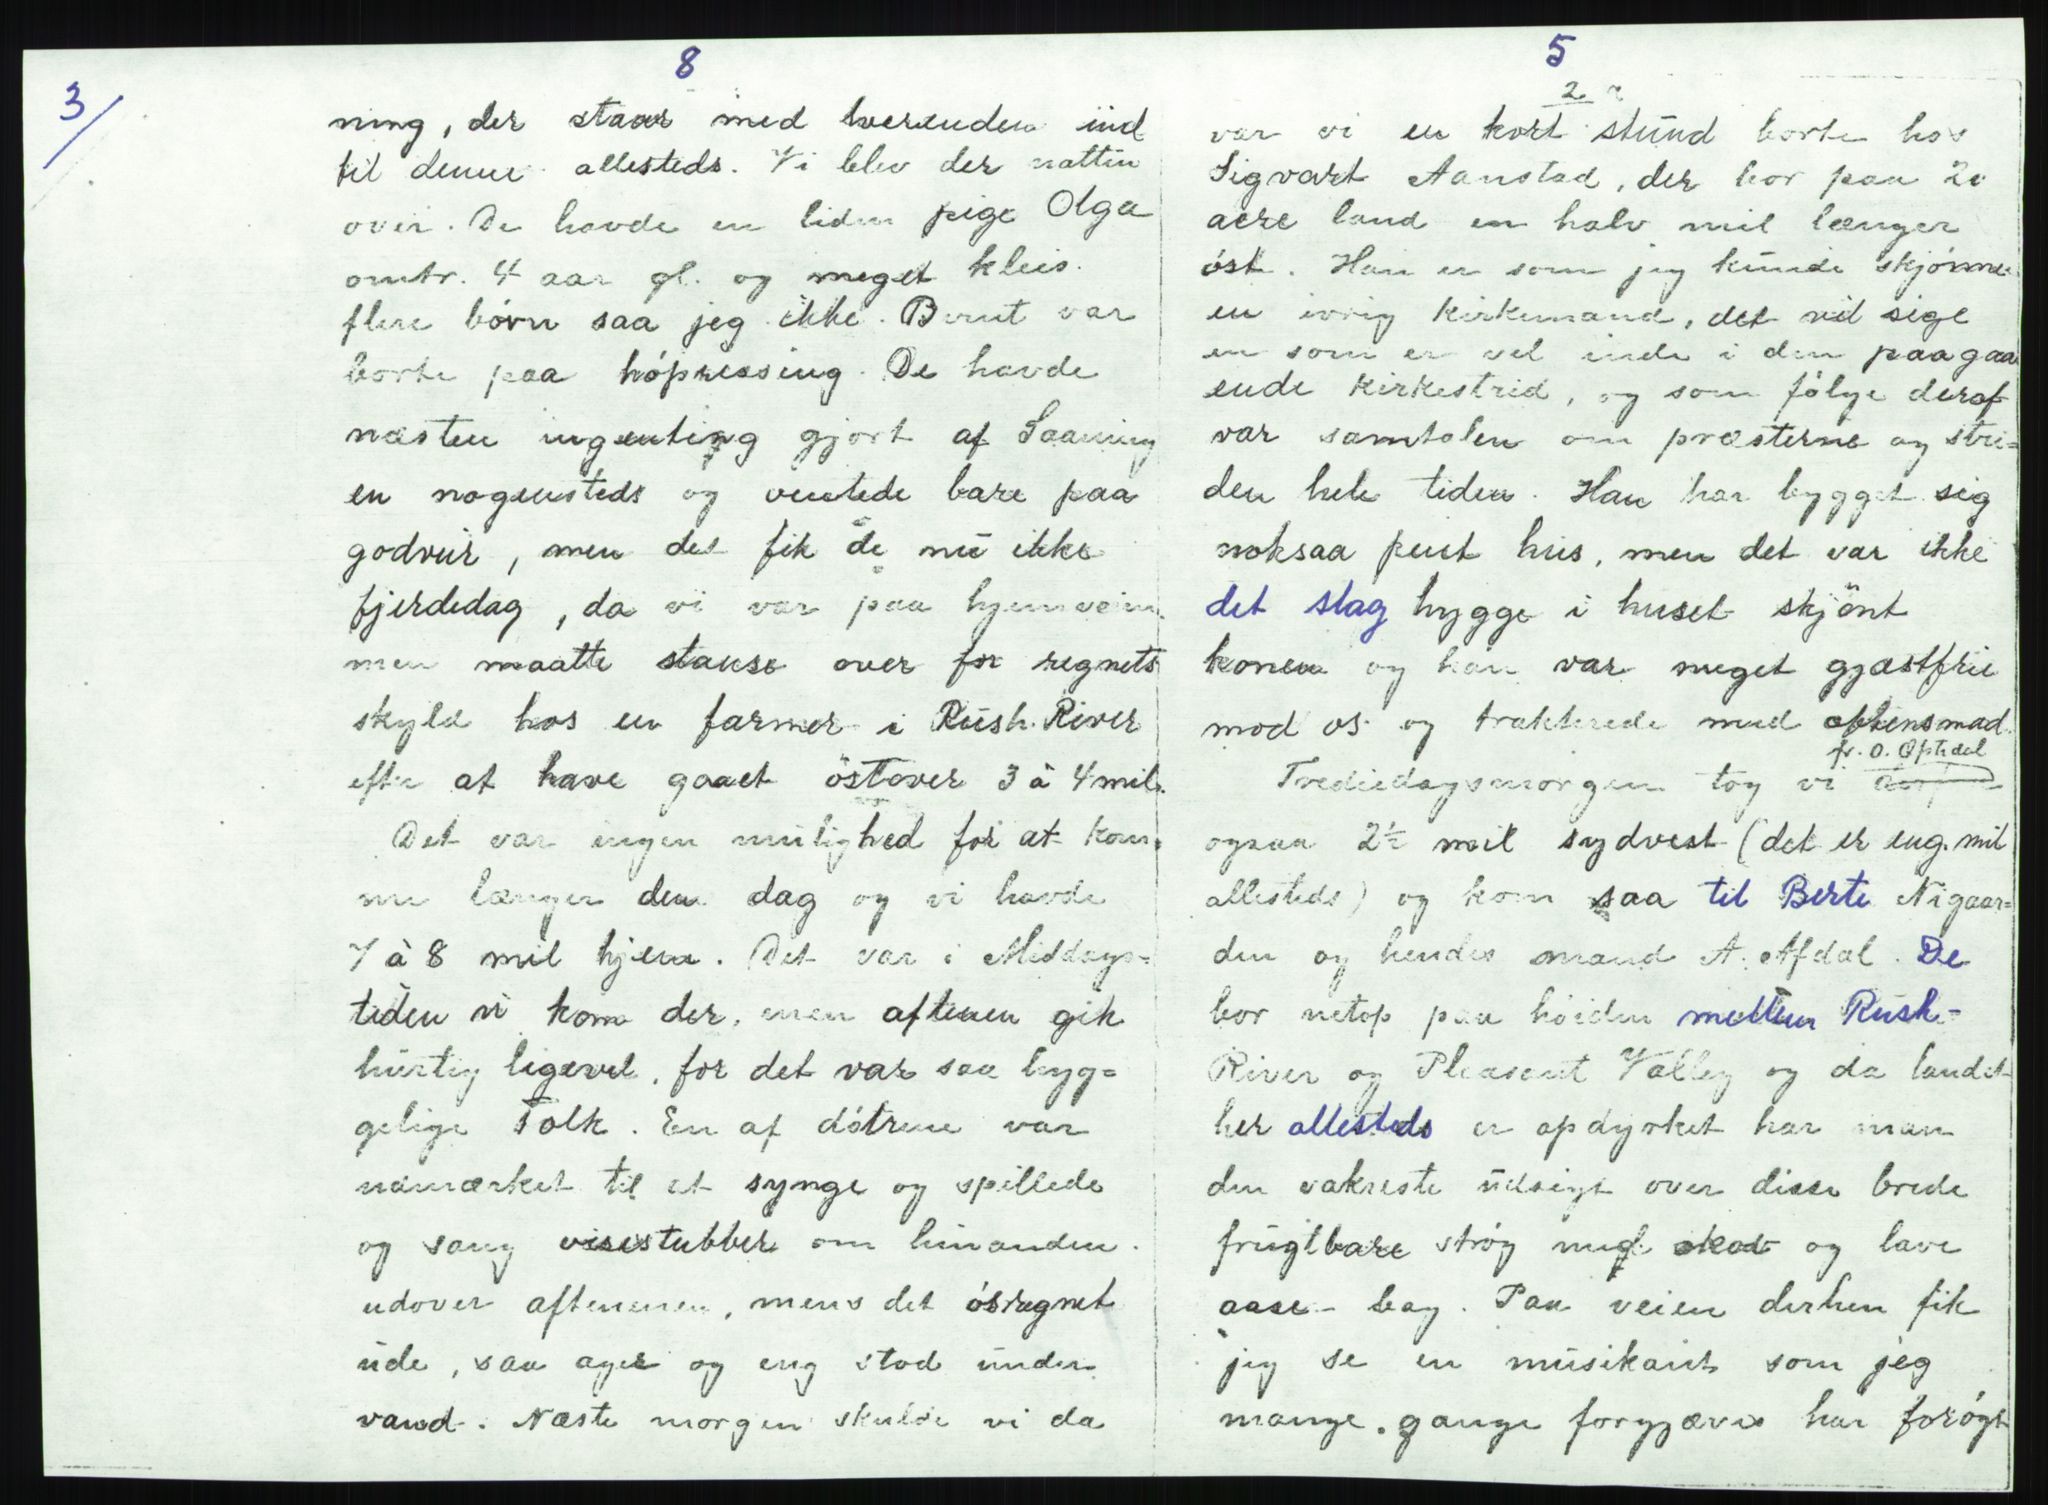 3/
8
ning, der staar med hverenden ind
til denne allesteds. Vi blev der nattin
over. De havde en liden pige Olga
omtr. 4 aar gl. og meget kleis.
flere børn saa jeg ikke. Bernt var
borte paa høpressing. De havde
næsten ingenting gjort af Saaning
en nogensteds og ventede bare paa
godveir, men det fik de nu ikke
fjerdedag, da vi var paa hjemveien
men maatte stanse over for regnets
skyld hos en farmer i Rush River
efter at have gaaet østover 3 à 4 mil.
Det var ingen mulighed for at kom-
me længer den dag og vi havde
7 à 8 mil hjem. Det var i Middags-
tiden vi kom der, men aftenen gik
hurtig ligevel, for det var saa hyg=
gelige Folk. En af døtrene var
udmærket til at synge og spillede
og sang visestubber om hinanden
udover aftenenen, mens det øsregnet
ude, saa ager og eng stod under
vand. Næste morgen skulde vi da
5
2
var vi en kort stund borte hos
Sigvart Aanstad, der bor paa 20
acre land en halv mil længer
øst. Han er som jeg kunde skjønne
en ivrig kirkemand, det vil sige
en som er vel inde i den paagaa
ende kirkestrid, og som følge deraf
var samtalen om præsterne og stri=
den hele tiden. Han har bygget sig
noksaa pent hus, men det var ikke
det slag hygge i huset skjönt
konen og han var meget gjæstfrie
mod os og trakterede med aftensmad.
fr. O. Optedal
Trediedagsmorgen tog vi
ogsaa 2½ mil sydvest (det er eng. mil
allesteds) og kom saa til Berte Nigaar=
den og hendes mand A. Afdal. De
bor netop paa høiden mellem Rush-
River og Pleasent Valley og da landet
her allesteds er opdyrket har man
den vakreste udsigt over disse brede
frugtbare strøg med skov og lave
aase bag. Paa veien derhen fik
jeg se en musikant som jeg
mange gange forgjæves har forøgt